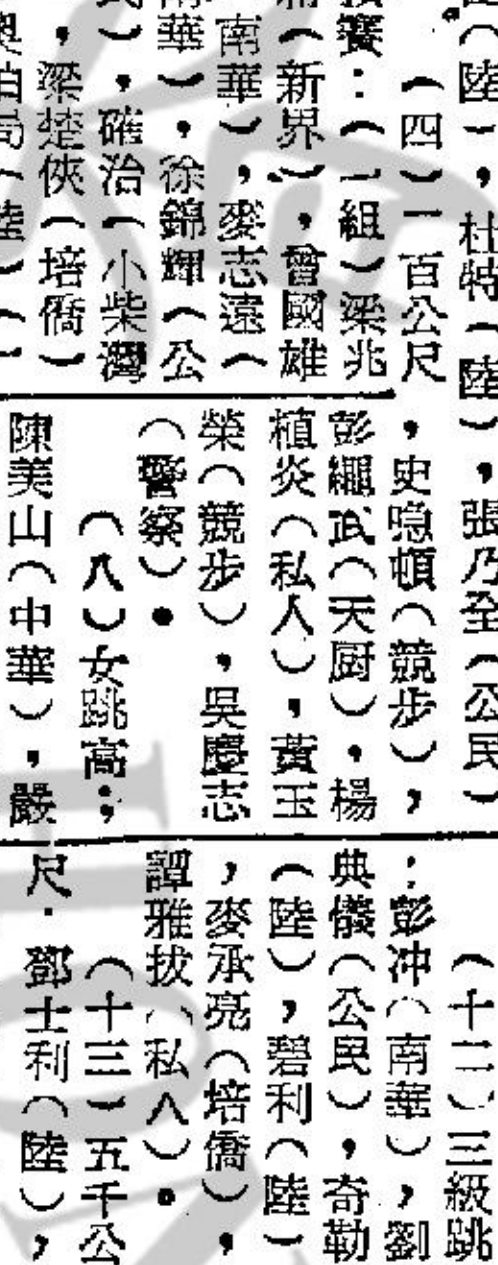 （陸），杜特（陸），張乃全（公民）
（四）一百公尺
預賽：（一組）梁兆
（新界），曾國雄
南華），麥志遠（
南華），徐錦輝（公
），確治（小柴灣
，梁楚俠（培僑）
（陸）（一
，史噫頓（競步），
彭繩武（天厨），楊
植炎（私人），黃玉
榮（競步），吳慶志
（警察）。
（八）女跳高；
陳美山（中華），嚴
（十二）三級跳
：彭冲（南華），劉
典儀（公民），奇勒
（陸），碧利（陸）
，麥承亮（培僑），
譚雅拔（私人）。
（十三）五千公
尺．鄧士利（陸），